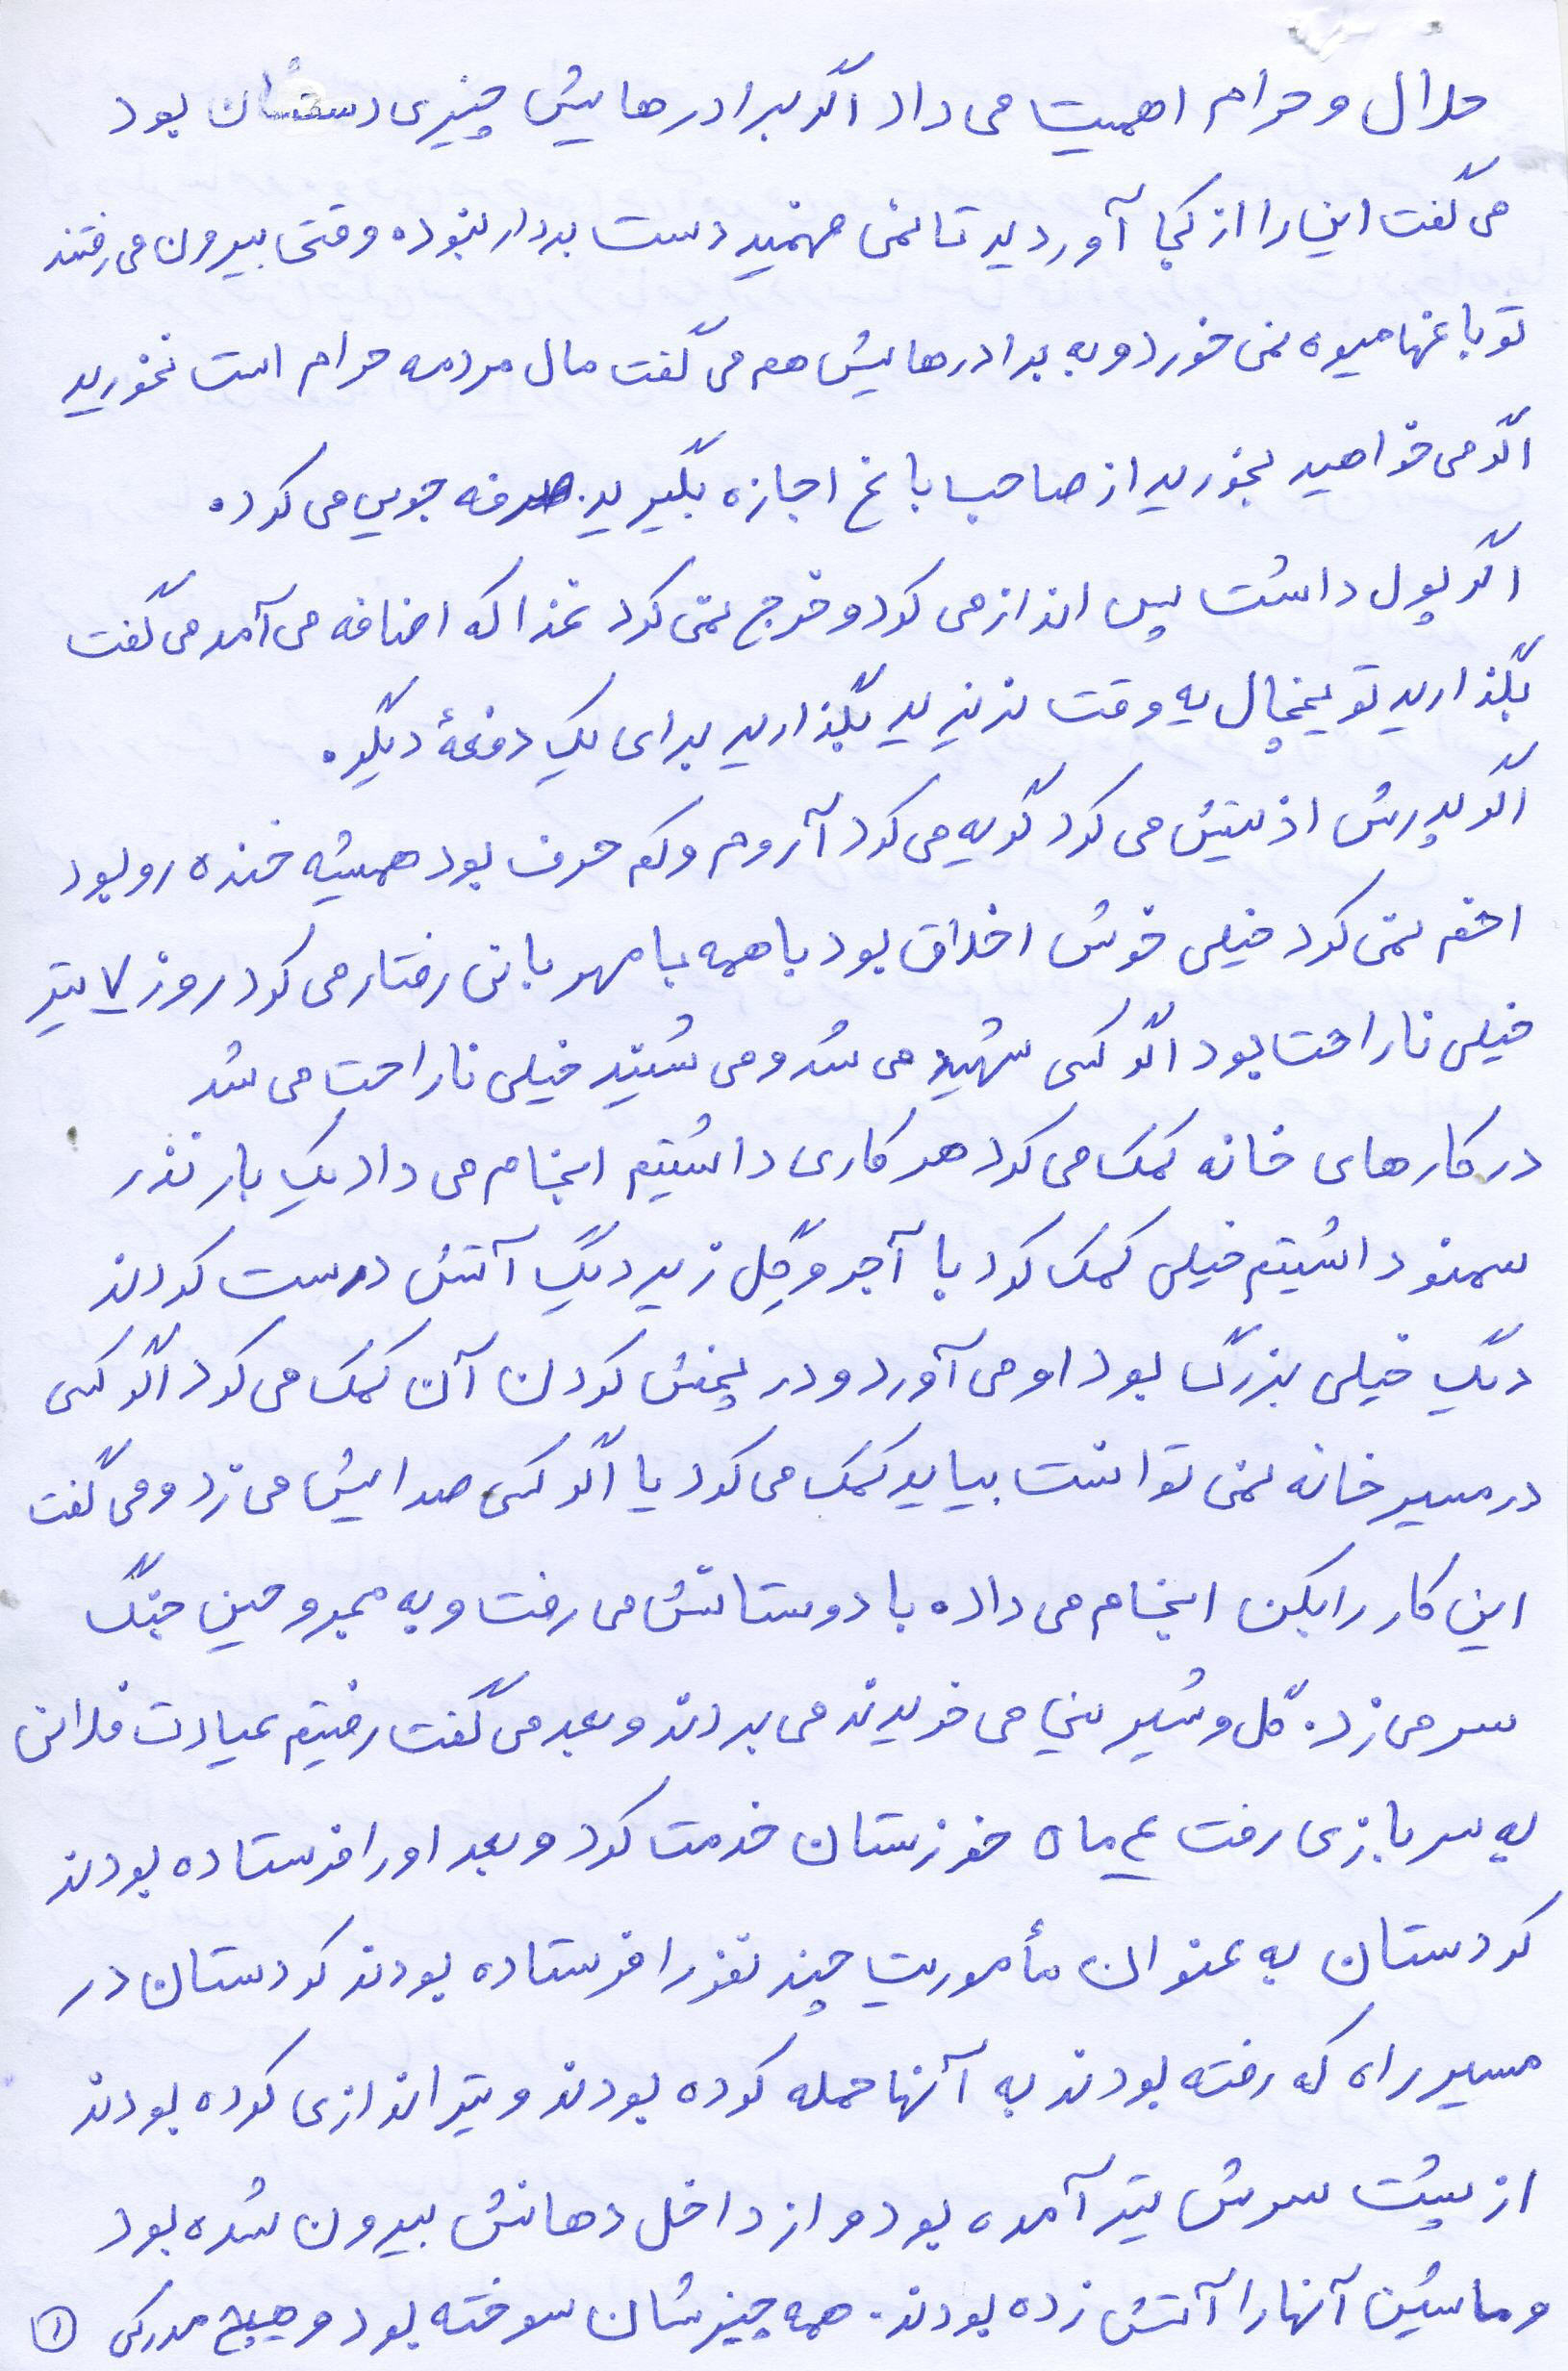 حلال و حرام اهمیت می داد اگر برادرهایش چیزی دستشان بود
می گفت این را از کجا آوردید تا نمی فهمید دست بردار نبوده وقتی بیرون می رفتند
تو باغها میوه نمی خورد و به برادرهایش هم می گفت مال مردمه حرام است نخورید
اگر می خواهید بخورید از صاحب باغ اجازه بگیرید. صرفه جویی می کرد.
اگر پول داشت پس انداز می کرد و خرج نمی کرد غذا که اضافه می آمد می گفت
بگذارید تو یخچال یه وقت نریزید بگذارید برای یک دفعهٔ دیگر.
اگر پدرش اذیتش می کرد گریه می کرد آروم و کم حرف بود همیشه خنده رو بود
اخم نمی کرد خیلی خوش اخلاق بود با همه با مهربانی رفتار می کرد روز ۷ تیر
خیلی ناراحت بود اگر کسی شهید می شد و می شنید خیلی ناراحت می شد
در کارهای خانه کمک می کرد هر کاری داشتیم انجام می داد یک بار نذر
سمنو داشتیم خیلی کمک کرد با آجر و گِل زیر دیگ آتش درست کردند
دیگ خیلی بزرگ بود او می آورد و در پخش کردن آن کمک می کرد اگر کسی
در مسیر خانه نمی توانست بیاید کمک می کرد یا اگر کسی صدایش می زد و می گفت
این کار را بکن انجام می داده با دوستانش می رفت و به مجروحین جنگ
سر می زد. گل و شیرینی می خریدند می بردند و بعد می گفت رفتیم عیادت فلانی
به سربازی رفت ۴ ماه خوزستان خدمت کرد و بعد او را فرستاده بودند
کردستان به عنوان مأموریت چند نفر را فرستاده بودند کردستان در
مسیر راه که رفته بودند به آنها حمله کرده بودند و تیراندازی کرده بودند
از پشت سرش تیر آمده بود و از داخل دهانش بیرون شده بود
و ماشین آنها را آتش زده بودند. همه چیزشان سوخته بود و هیچ مدرکی ۱